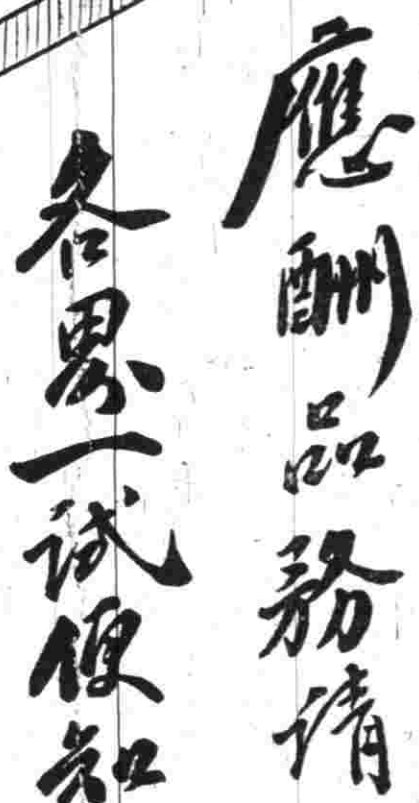 應酬品務請
各界一試便知